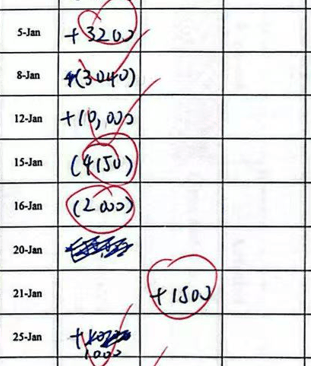 5-Jan +3200
8-Jan (3040)
12-Jan +10,000
15-Jan (4150)
16-Jan (2000)
20-Jan
21-Jan +1500
25-Jan +
1000